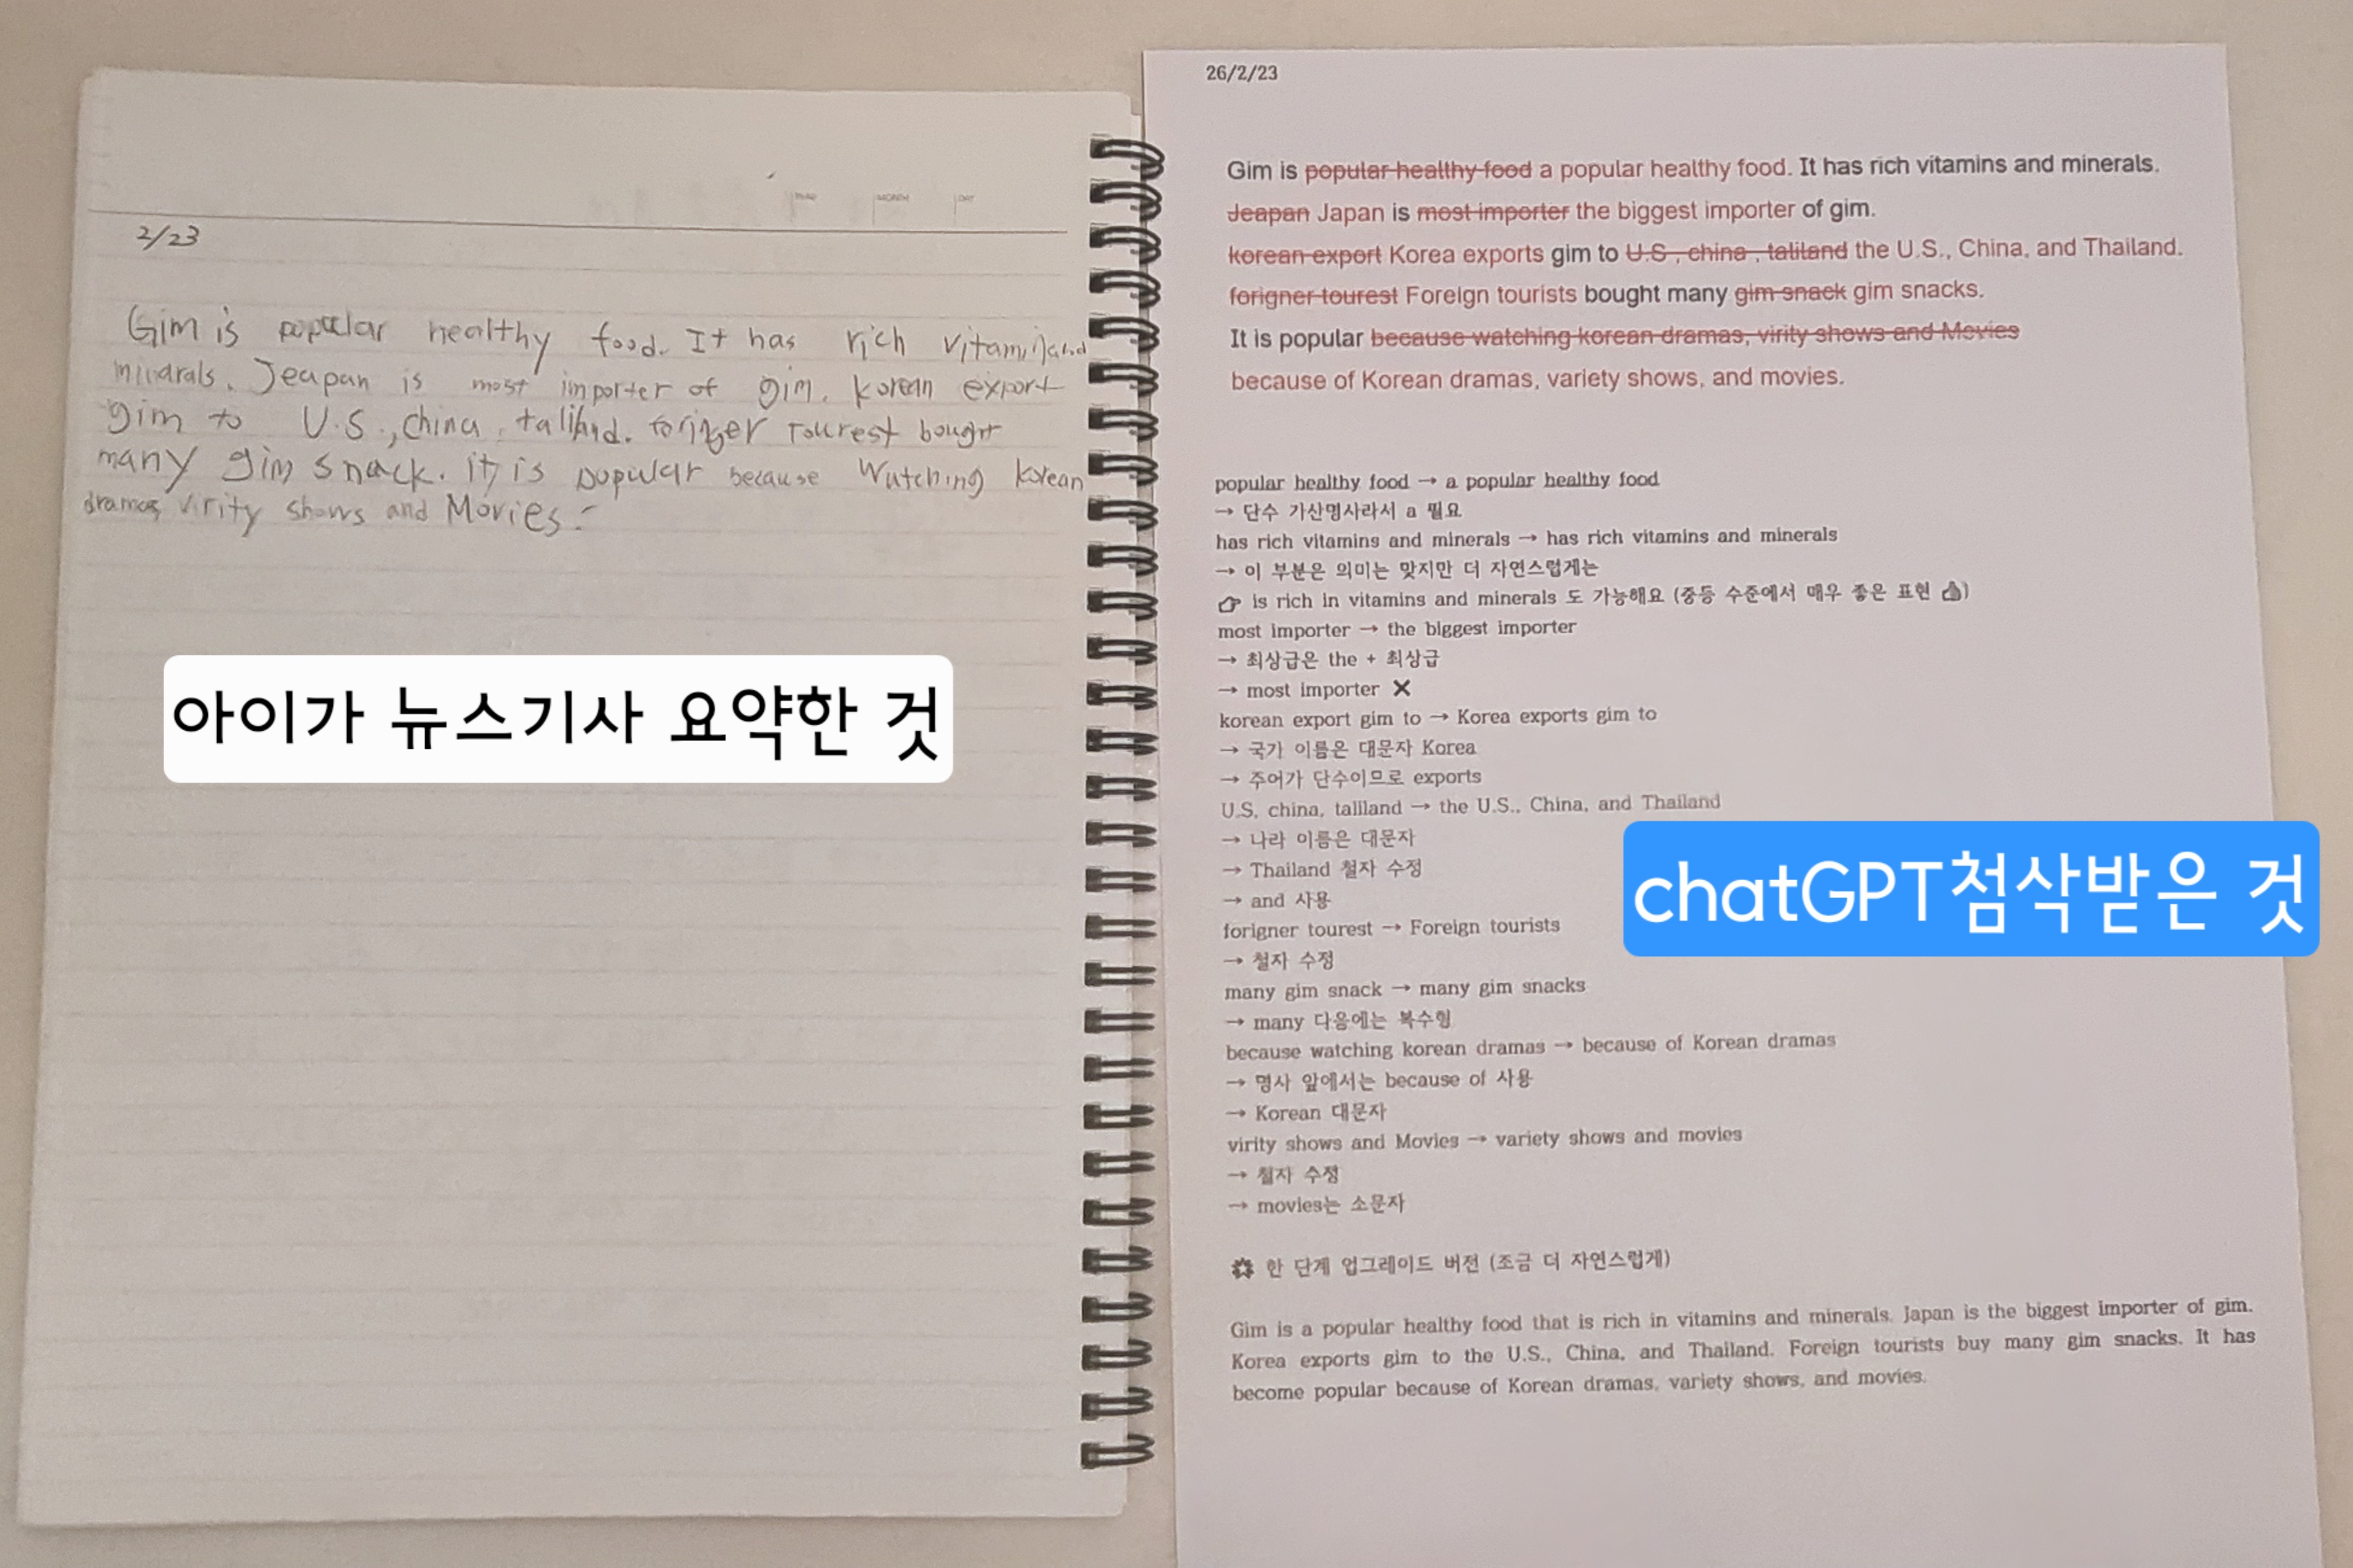 2/23
Gim is popular healthy food. It has rich vitamin and
minarals. Jeapan is most importer of gim. korean export
gim to U.S., china, taliland. foringer tourest bought
many gim snack. it is popular because watching korean
dramas, virity shows and Movies.
YEAR MONTH DAY
아이가 뉴스기사 요약한 것
26/2/23
Gim is popular healthy food a popular healthy food. It has rich vitamins and minerals.
Jeapan Japan is most importer the biggest importer of gim.
korean export Korea exports gim to U.S , china , taliland the U.S., China, and Thailand.
forigner tourest Foreign tourists bought many gim snack gim snacks.
It is popular because watching korean dramas, virity shows and Movies
because of Korean dramas, variety shows, and movies.
popular healthy food → a popular healthy food
→ 단수 가산명사라서 a 필요
has rich vitamins and minerals → has rich vitamins and minerals
→ 이 부분은 의미는 맞지만 더 자연스럽게는
👉 is rich in vitamins and minerals 도 가능해요 (중등 수준에서 매우 좋은 표현 👍)
most importer → the biggest importer
→ 최상급은 the + 최상급
→ most importer ❌
korean export gim to → Korea exports gim to
→ 국가 이름은 대문자 Korea
→ 주어가 단수이므로 exports
U.S, china, taliland → the U.S., China, and Thailand
→ 나라 이름은 대문자
→ Thailand 철자 수정
→ and 사용
forigner tourest → Foreign tourists
→ 철자 수정
many gim snack → many gim snacks
→ many 다음에는 복수형
because watching korean dramas → because of Korean dramas
→ 명사 앞에서는 because of 사용
→ Korean 대문자
virity shows and Movies → variety shows and movies
→ 철자 수정
→ movies는 소문자
chatGPT첨삭받은 것
한 단계 업그레이드 버전 (조금 더 자연스럽게)
Gim is a popular healthy food that is rich in vitamins and minerals. Japan is the biggest importer of gim.
Korea exports gim to the U.S., China, and Thailand. Foreign tourists buy many gim snacks. It has
become popular because of Korean dramas, variety shows, and movies.